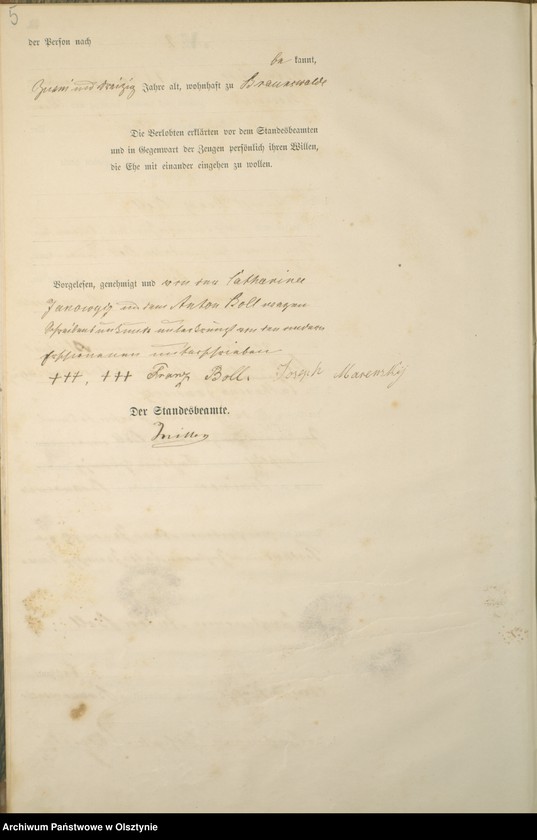 5
der Person nach
be kannt,
Zwei und dreizig Jahre alt, wohnhaft zu Braunswalde
Die Verlobten erklärten vor dem Standesbeamten
und in Gegenwart der Zeugen persönlich ihren Willen,
die Ehe mit einander eingehen zu wollen.
Vorgelesen, genehmigt und von der Catharina
und dem Anton Boll wegen
Schreibensunkunde unterkreuzt von den andern
Erschienenen unterschrieben
+++, +++ Franz Boll. Joseph
Der Standesbeamte.
Archiwum Państwowe w Olsztynie